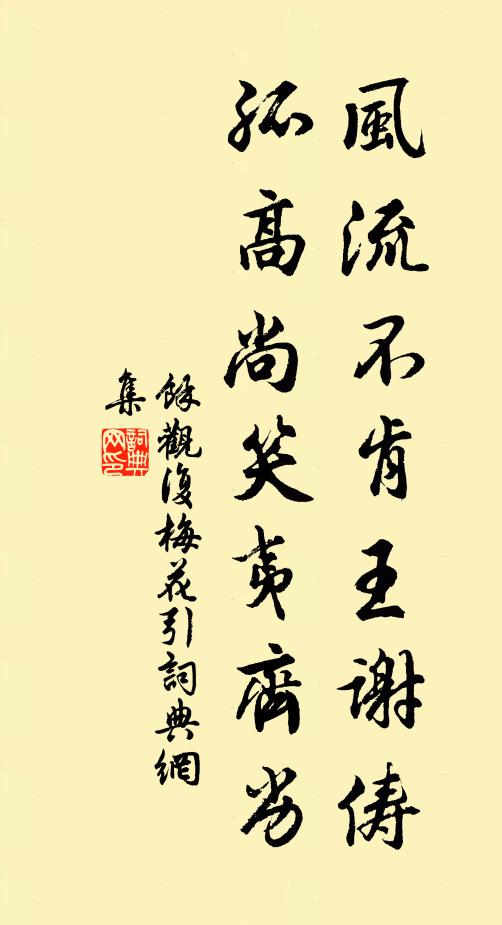 風流不肯王謝儔
孤高尚笑夷齊劣
餘觀復梅花引詞典網
集
詞典網印